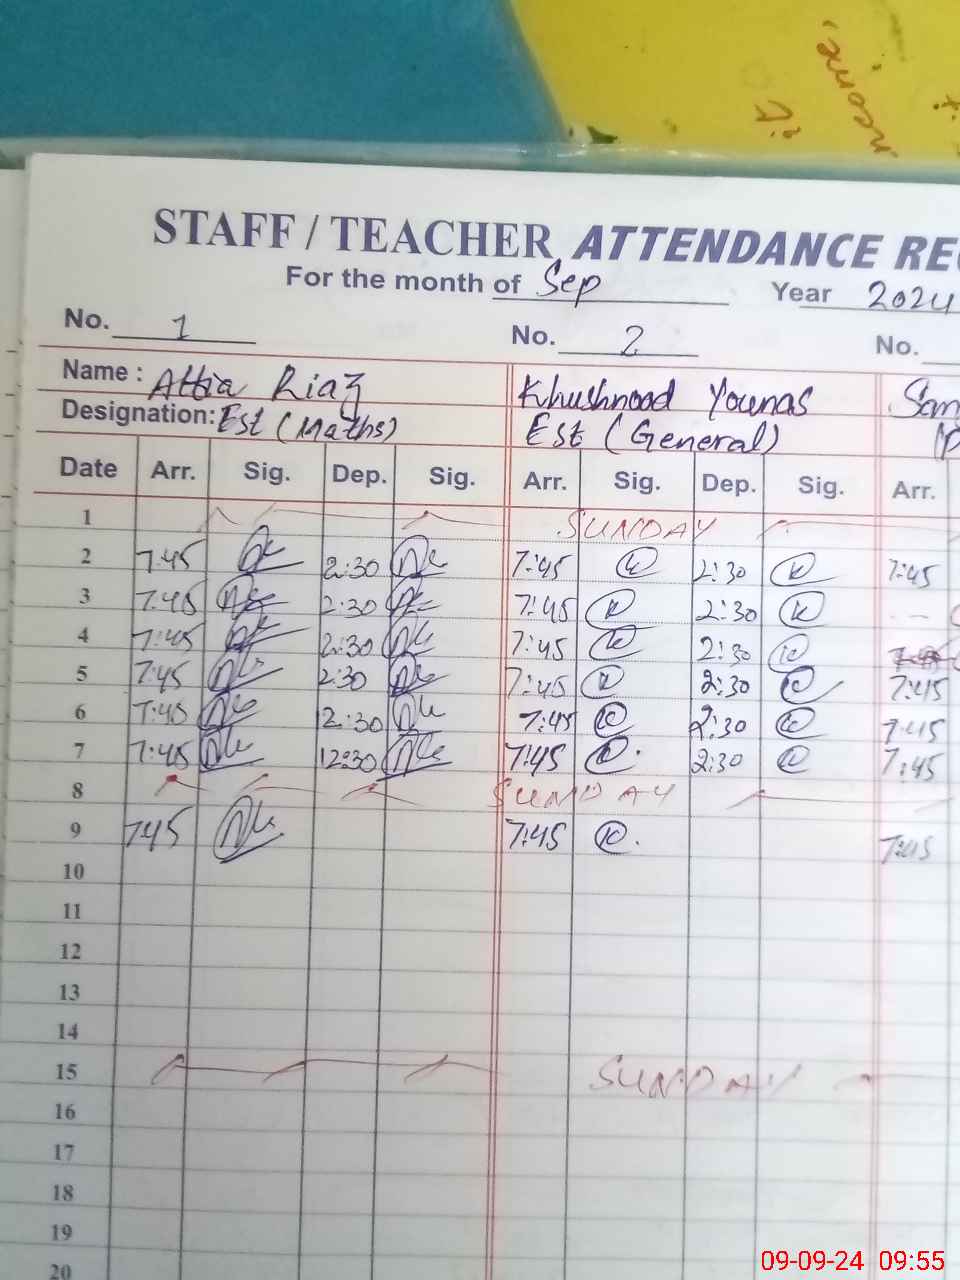 necone,
it
STAFF / TEACHER ATTENDANCE RE
For the month of Sep Year 2024
No. 1 No. 2 No.
Name : Attia Riaz Khushnood Younas Sam
Designation: Est (Maths) Est (General)
Date Arr. Sig. Dep. Sig. Arr. Sig. Dep. Sig. Arr.
1 SUNDAY
2 7:45 2:30 7:45 2:30 7:45
3 7:45 2:30 7:45 2:30
4 7:45 2:30 7:45 2:30
5 7:45 2:30 7:45 2:30 7:45
6 7:45 2:30 7:45 2:30 7:45
7 7:45 12:30 7:45 2:30 7:45
8 SUNDAY
9 7:45 7:45 7:45
10
11
12
13
14
15 SUNDAY
16
17
18
19
20
09-09-24 09:55